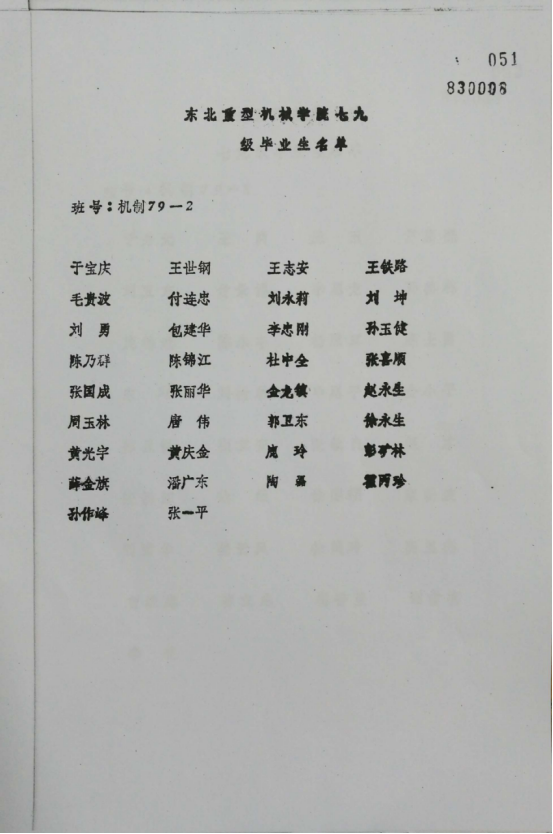 051
830006
东北重型机械学院七九
级毕业生名单
班号：机制79－2
于宝庆 王世钢 王志安 王铁路
毛贵波 付连忠 刘永莉 刘坤
刘勇 包建华 李忠刚 孙玉健
陈乃群 陈锦江 杜中全 张喜顺
张国成 张丽华 金龙镇 赵永生
周玉林 唐伟 郭卫东 徐永生
黄光宇 黄庆金 庞玲 彭矿林
薛金旗 潘广东 陶磊 霍丙珍
孙作峰 张一平